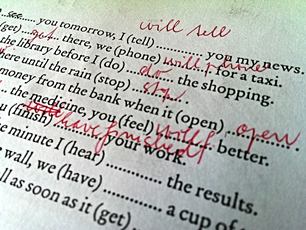 will tell
see you tomorrow, I (tell) ............ you my news.
(get) get there, we (phone) will phone for a taxi.
the library before I (do) do the shopping.
here until the rain (stop) stop
money from the bank when it (open) open
the medicine, you (feel) will better.
(finish) have finished your work.
minute I (hear) ............ the results.
wall, we (have) ............ a cup of
as soon as it (get)